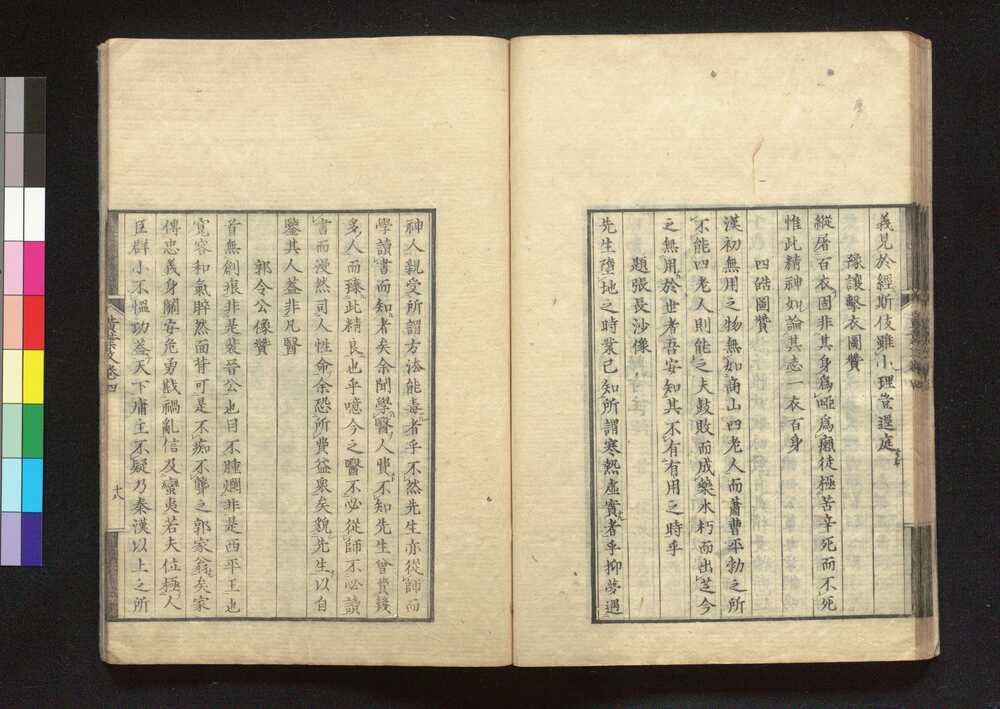 義見於經斯伎雖小理豈遐庭
豫讓擊衣圖贊
縱屠百衣固非其身為啞為癩徒極苦辛死而不死
惟此精神如論其志一衣百身
四皓圖贊
漢初無用之物無如商山四老人而蕭曹平勃之所
不能四老人則能之夫鼓敗而成藥木朽而出芝今
之無用於世者吾安知其不有有用之時乎
題張長沙像
先生墮地之時業已知所謂寒熱虛實者乎抑夢遇
神人親受所謂方法能毒者乎不然先生亦從師而
學讀書而知者矣余聞學醫人費不知先生曾費幾
多人而臻此精良也乎噫今之醫不必從師不必讀
書而漫然司人性命余恐所費益衆矣貌先生以自
鑒其人蓋非凡醫
郭令公像贊
首無創痕非是裴晉公也目不腫爛非是西平王也
寬容和氣睟然面背可是不痴不聾之郭家翁矣家
傳忠義身關安危勇戡禍亂信及蠻夷若夫位極人
臣群小不慍功蓋天下庸主不疑乃秦漢以上之所
卷四
十八